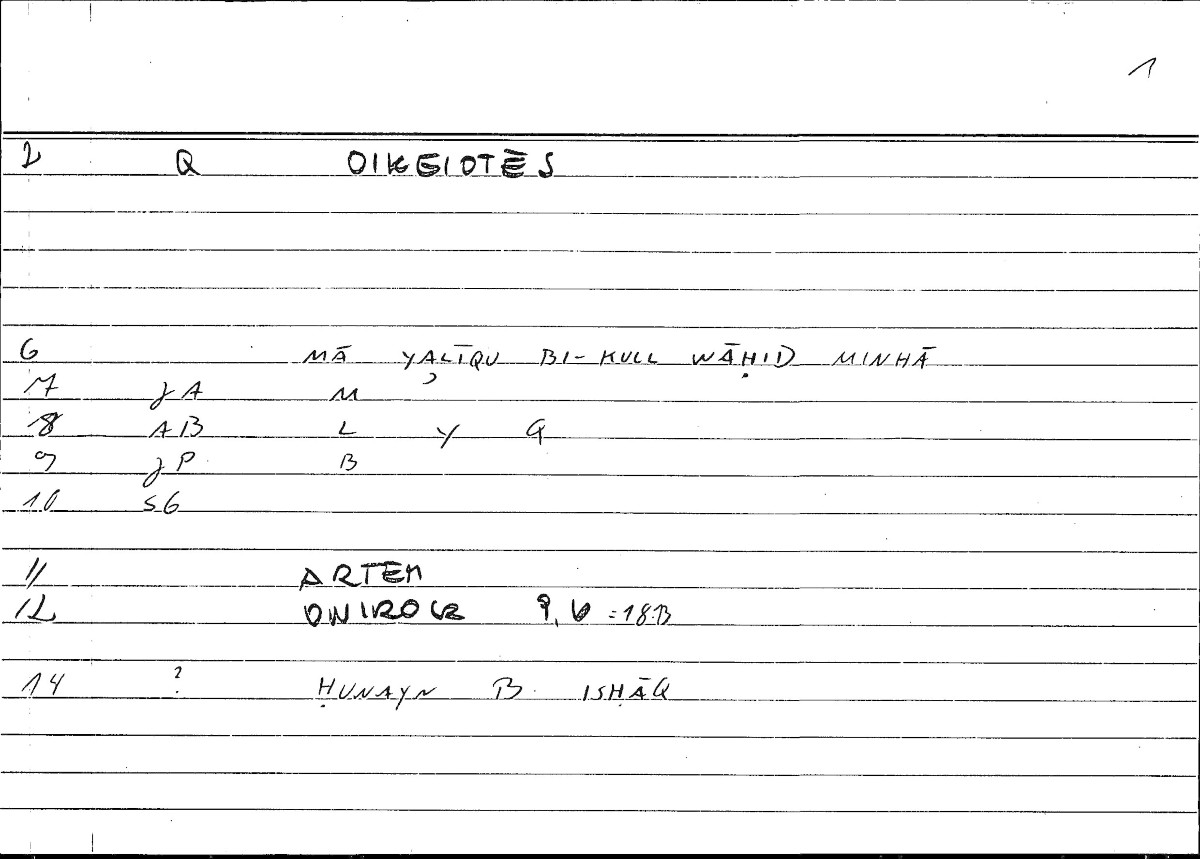 1
2 Q OIKEIOTĒS
6 MĀ YALĪQU BI-KULL WĀḤID MINHĀ
7 JA M
8 AB L Y Q
9 JP B
10 SG
11 ARTEM
12 ONIROCR 9, 6 = 18.13
14 ? ḤUNAYN B. ISḤĀQ